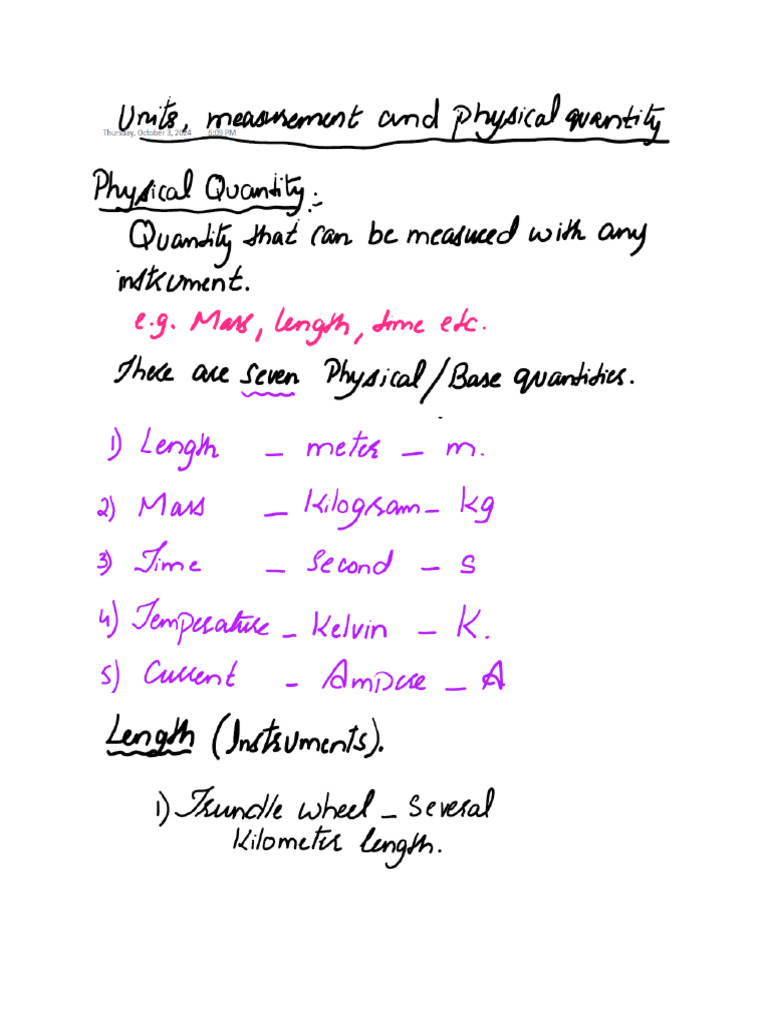 Units, measurement and Physical quantity
Thursday, October 3, 2024 6:09 PM
Physical Quantity:-
Quantity that can be measured with any
instrument.
e.g. Mass, length, time etc.
There are seven Physical/Base quantities.
1) Length - meter - m.
2) Mass - Kilogram - kg
3) Time - Second - s
4) Temperature - Kelvin - K.
5) Current - Ampere - A
Length (Instruments).
1) Trundle wheel - Several
Kilometer length.